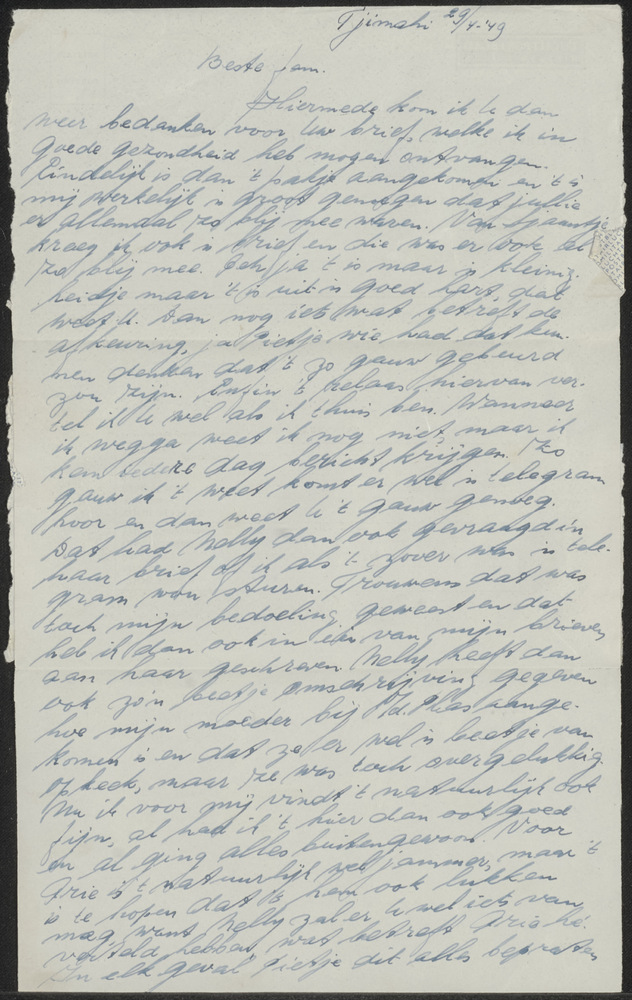 Tjimahi 29/4-'49
Beste Jan.
Hiermede kom ik U dan
weer bedanken voor Uw brief, welke ik in
goede gezondheid heb mogen ontvangen.
Eindelijk is dan 't pakje aangekomen en 't is
mij werkelijk 'n groot genoegen dat jullie
er allemaal zo blij mee waren. Van Sjaantje
kreeg ik ook 'n brief en die was er ook al
zo blij mee. Och ja 't is maar 'n kleinig-
heidje maar 't is uit 'n goed hart, dat
weet U. Dan nog iets wat betreft de
afkeuring, ja Pietje wie had dat kun-
nen denken dat 't zo gauw gebeurd
zou zijn. Enfin 't relaas hiervan ver-
tel ik U wel als ik thuis ben. Wanneer
ik wegga weet ik nog niet, maar ik
kan iedere dag bericht krijgen. Zo
gauw ik 't weet komt er wel 'n telegram
hoor en dan weet U 't gauw genoeg.
Dat had Nelly dan ook gevraagd in
haar brief of ik als 't zover was 'n tele-
gram wou sturen. Trouwens dat was
toch mijn bedoeling geweest en dat
heb ik dan ook in één van mijn brieven
aan haar geschreven. Nelly heeft dan
ook zo'n beetje omschrijving gegeven
hoe mijn moeder bij v.d. Plas aange-
komen is en dat ze er wel 'n beetje van
opkeek, maar ze was toch overgelukkig.
Nu ik voor mij vindt 't natuurlijk ook
fijn, al had ik 't hier dan ook goed
en al ging alles buitengewoon. Voor
Arie is 't natuurlijk wel jammer, maar 't
is te hopen dat 't hem ook lukken
mag, want Nelly zal er U wel iets van
verteld hebben wat betreft Arie hé.
In elk geval Pietje dit alles bepraten